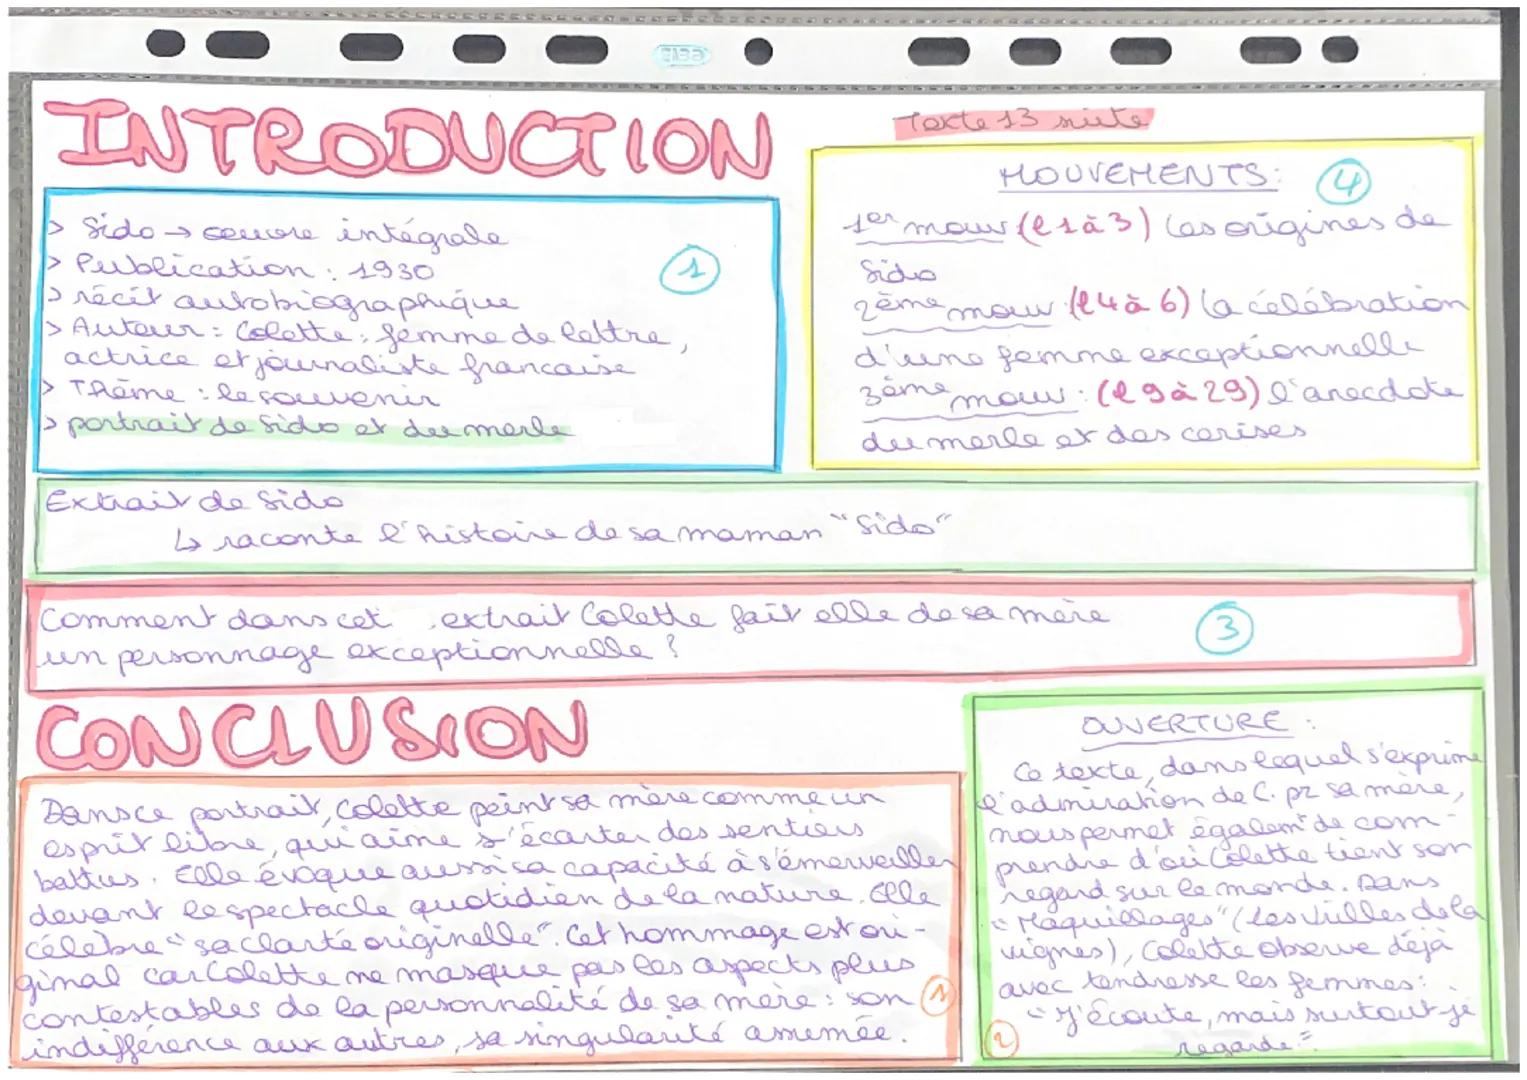 INTRODUCTION
> Sido → oeuvre intégrale
> Publication : 1930
> récit autobiographique
> Auteur = Colette : femme de lettre,
actrice et journaliste francaise
> Thème : le souvenir
> portrait de Sido et du merle
1
Texte 13 suite
MOUVEMENTS:
4
1er mouv (l 1 à 3) les origines de
Sido
2ème mouv (l 4 à 6) la célébration
d'une femme exceptionnelle
3ème mouv : (l 9 à 29) l'anecdote
du merle et des cerises
Extrait de Sido
↳ raconte l'histoire de sa maman "Sido"
Comment dans cet extrait Colette fait elle de sa mère
un personnage exceptionnelle ?
3
CONCLUSION
Dans ce portrait, Colette peint sa mère comme un
esprit libre, qui aime s'écarter des sentiers
battus. Elle évoque aussi sa capacité à s'émerveiller
devant le spectacle quotidien de la nature. Elle
célèbre "sa clarté originelle". Cet hommage est ori-
ginal car Colette ne masque pas les aspects plus
contestables de la personnalité de sa mère : son
indifférence aux autres, sa singularité assumée.
1
OUVERTURE :
Ce texte, dans lequel s'exprime
l'admiration de C. pr sa mère,
nous permet égalemt de com-
prendre d'où Colette tient son
regard sur le monde. Dans
"Maquillages" (Les vrilles de la
vignes), Colette observe déjà
avec tendresse les femmes :
"J'écoute, mais surtout je
regarde".
2